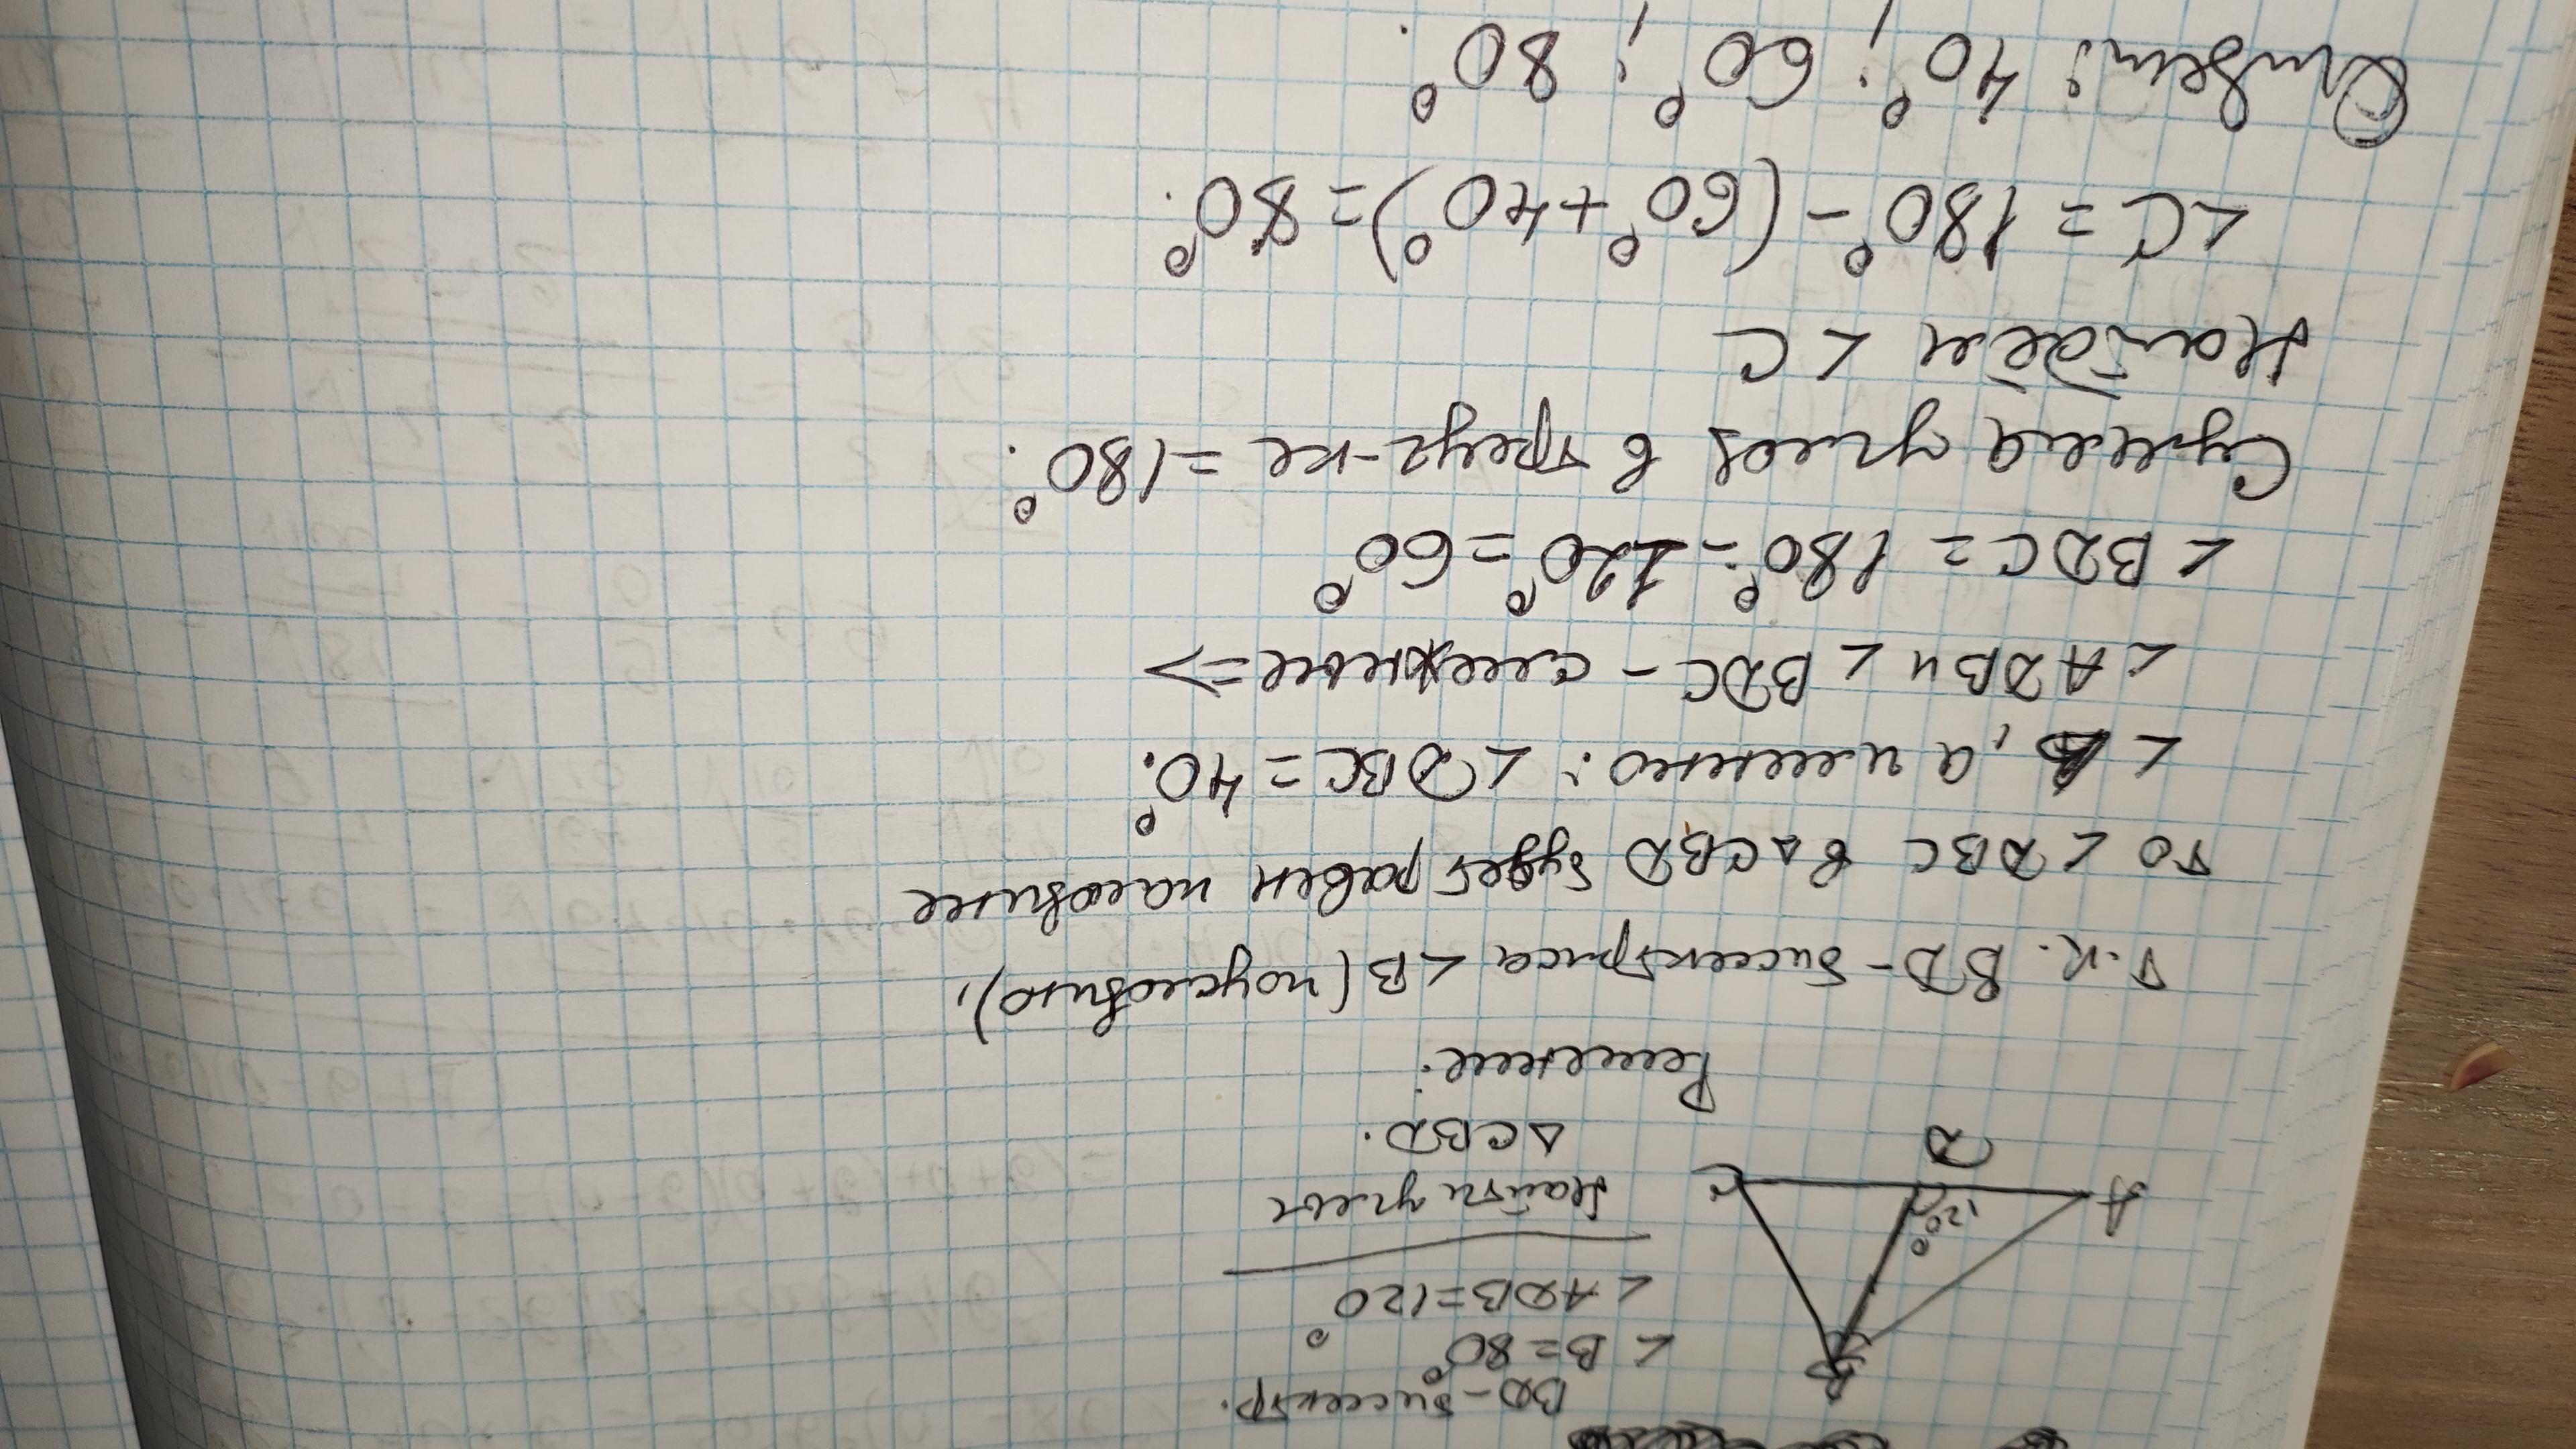 BD - биссектр.
∠B = 80°
∠ADB = 120°
Найти углы
△CBD.
B
120°
A
D
C
Решение:
Т.к. BD - биссектриса ∠B (по условию),
то ∠DBC в △CBD будет равен половине
∠B, а именно: ∠DBC = 40°.
∠ADB и ∠BDC - смежные =>
∠BDC = 180° - 120° = 60°
Сумма углов в треуг-ке = 180°.
Найдём ∠C
∠C = 180° - (60° + 40°) = 80°.
Ответ: 40°; 60°; 80°.